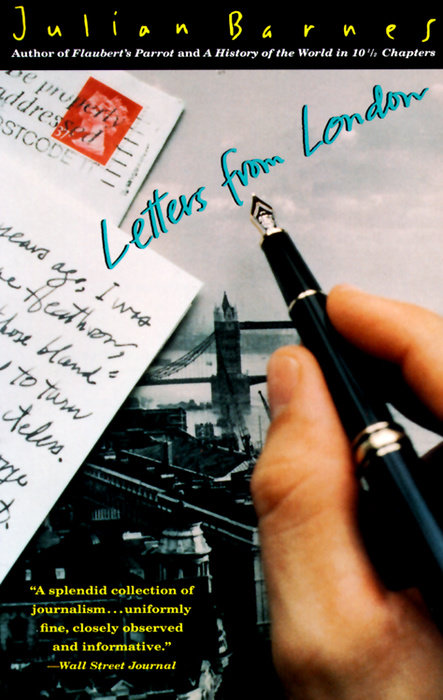 Julian Barnes
Author of Flaubert's Parrot and A History of the World in 10 1/2 Chapters
Be properly
addressed
POSTCODE
Letters from London
years ago, I was
Heathrow,
those bland
to turn
"A splendid collection of
journalism...uniformly
fine, closely observed
and informative."
—Wall Street Journal